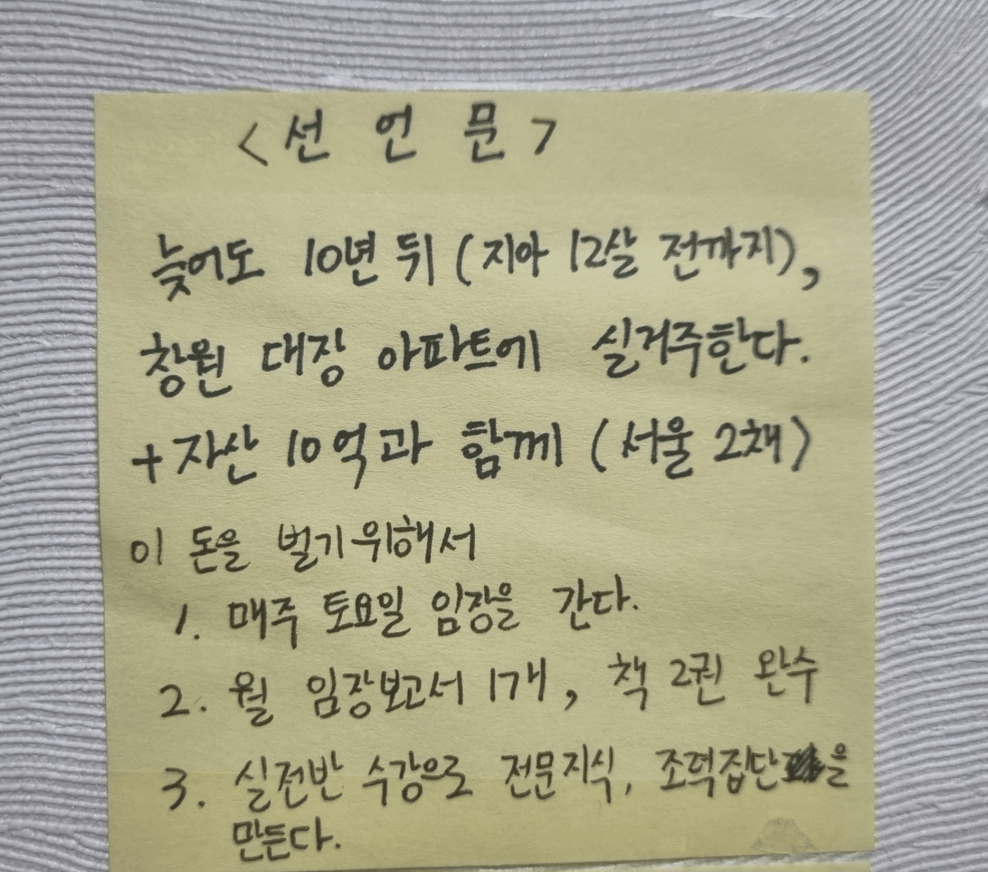 <선 언 문>
늦어도 10년 뒤 (지아 12살 전까지),
창원 대장 아파트에 실거주한다.
+자산 10억과 함께 (서울 2채)
이 돈을 벌기위해서
1. 매주 토요일 임장을 간다.
2. 월 임장보고서 1개, 책 2권 완수
3. 실전반 수강으로 전문지식, 조력집단을
만든다.